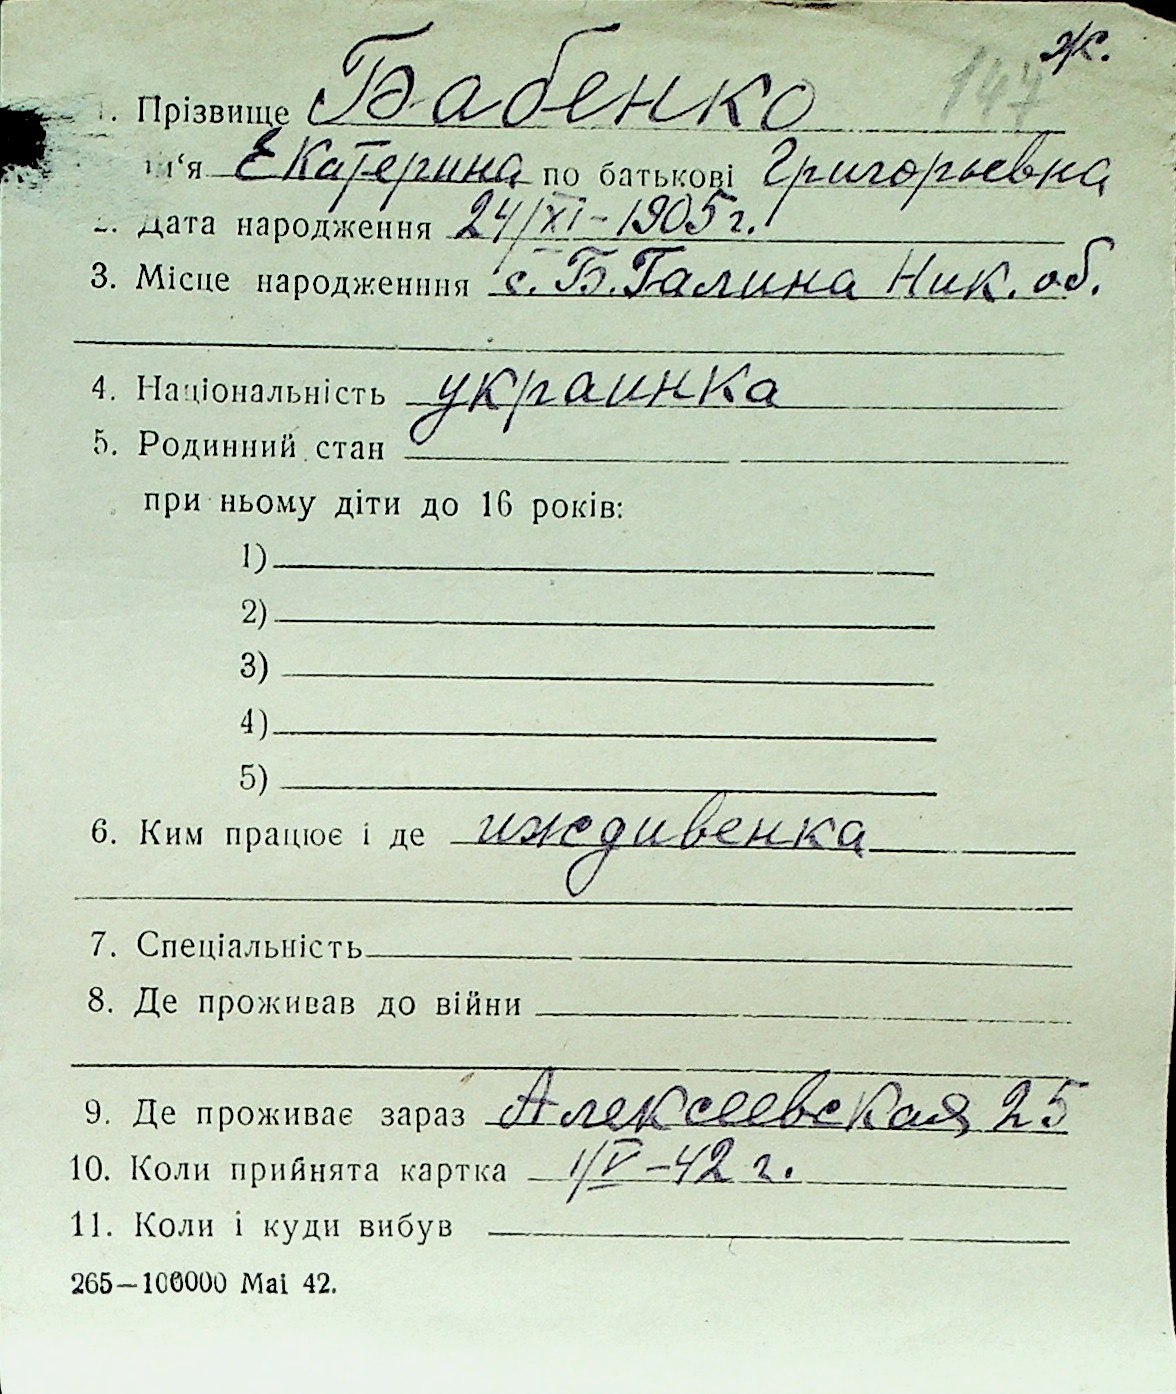 ж.
147
1. Прізвище Бабенко
ім‘я Екатерина по батькові Григорьевна
2. Дата народження 24/XI-1905 г.
3. Місце народженння с. Б. Галина Ник. об.
4. Національність украинка
5. Родинний стан
при ньому діти до 16 років:
1)
2)
3)
4)
5)
6. Ким працює і де иждивенка
7. Спеціальність
8. Де проживав до війни
9. Де проживає зараз Алексеевская 25
10. Коли прийнята картка 1/V-42 г.
11. Коли і куди вибув
265—100000 Mai 42.